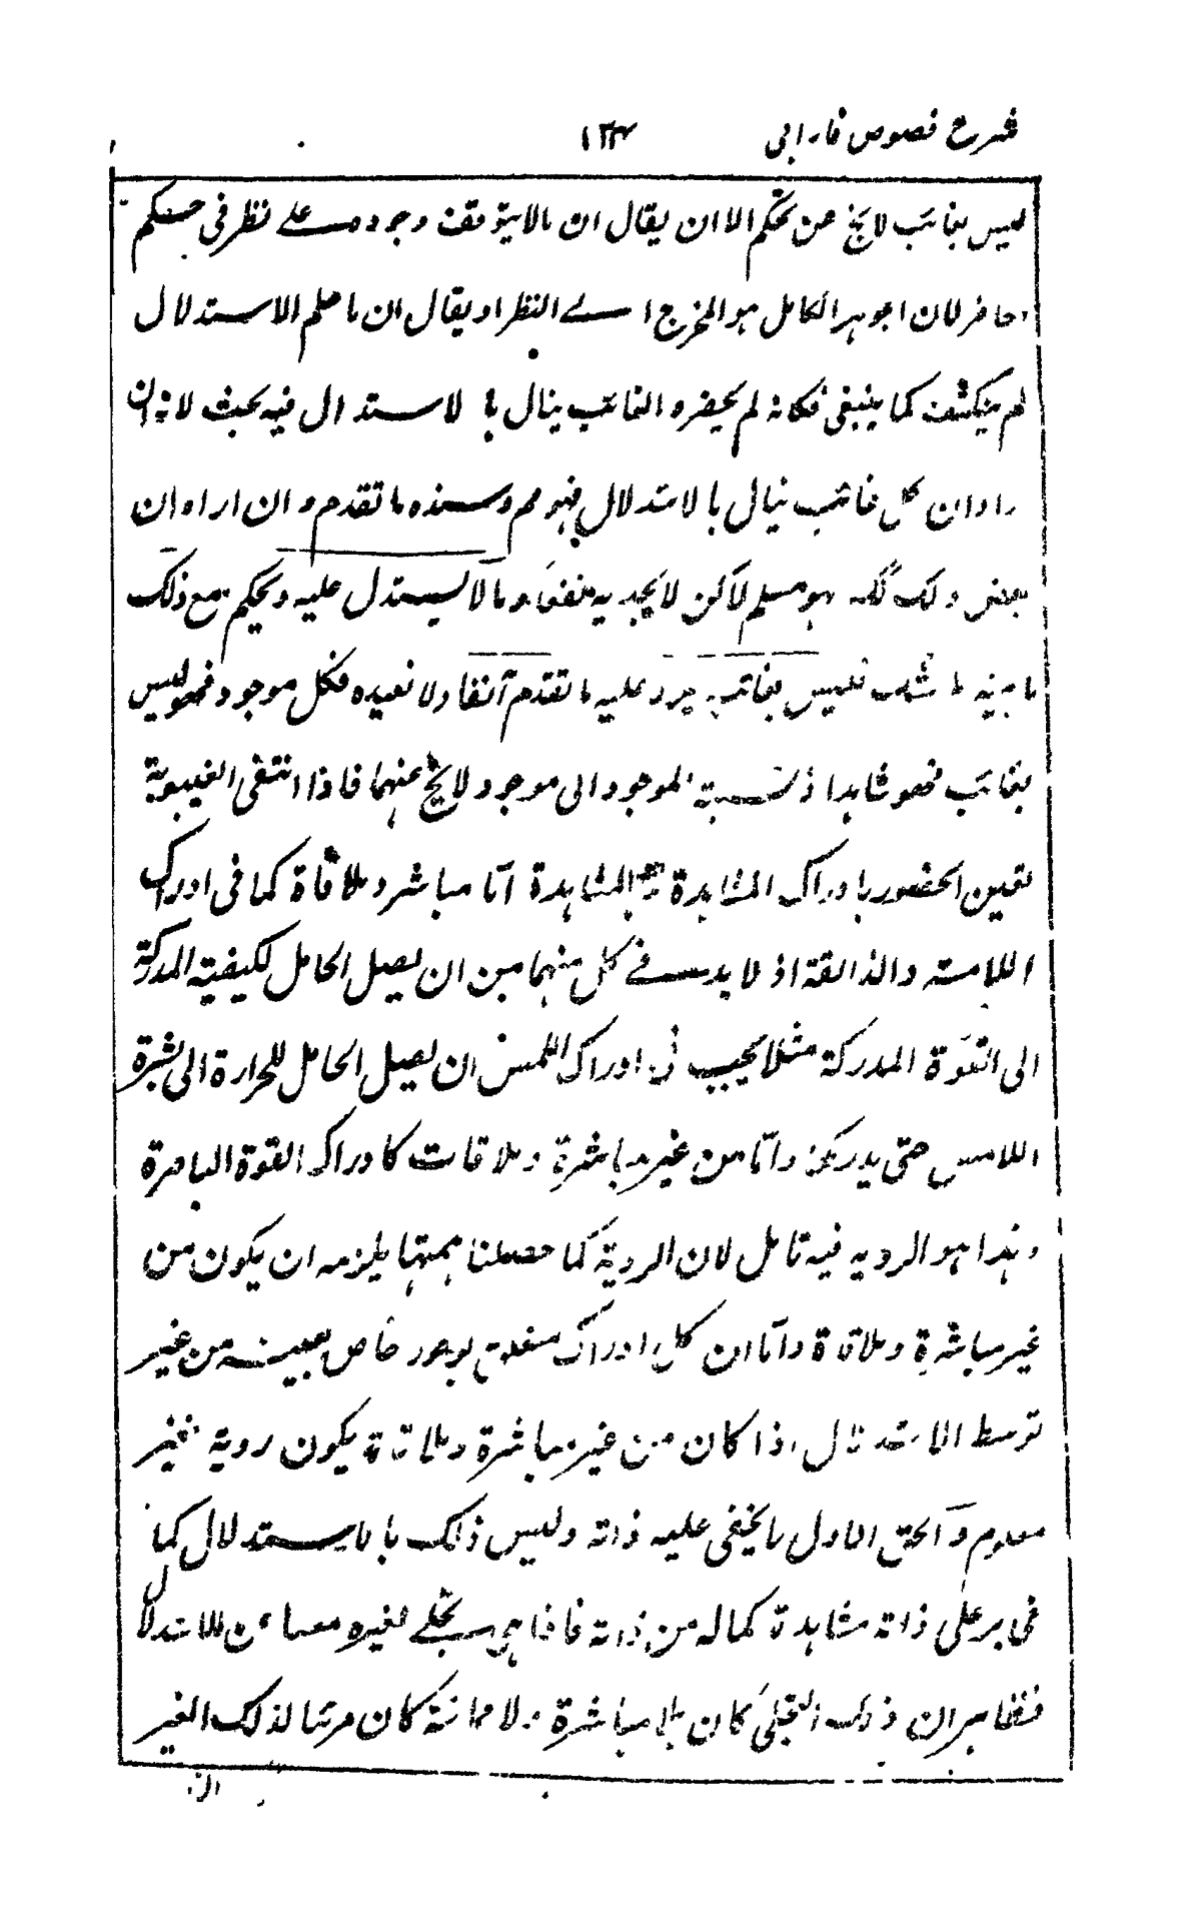 شرح فصوص فارابى ١٣٤
ليس بغائب لايخ عن تحكم الا ان يقال ان مالا يتوقف وجوده على نظر فى حكم
حاضر لان اجوهر الكامل هو المخرج الى النظر او يقال ان ما علم الاستدلال
لم ينكشف كما ينبغى فكانه لم يحضر و الغائب ينال بالاستدلال فيه بحث لانه ان
اراد ان كل غائب ينال بالاستدلال فهو مم وسنده ما تقدم و ان اراد ان
بعض ذلك كله هو مسلم لاكن لا يجديه نفعا و مالا يستدل عليه و يحكم مع ذلك
بانيته بلا شك فليس بغائب يرد عليه ما تقدم آنفا ولا نعيده فكل موجود فهو ليس
بغائب فهو شاهد اذ نسبة الموجود الى موجود لايخ عنهما فاذا انتفى الغيبوبة
تعين الحضور بادراك المشاهدة المشاهدة اما مباشر و ملاقاة كما فى ادراك
اللامسته و الذائقة اذ لا بد فى كل منهما من ان يصل الحامل لكيفيته المدركة
الى القوة المدركة مثلا يجب فى ادراك اللمس ان يصل الحامل للحرارة الى بشرة
اللامس حتى يدركه و اما من غير مباشرة و ملاقات كادراك القوة الباصرة
و هذا هو الرويه فيه تامل لان الروية كما حصلنا يلزمه ان يكون من
غير مباشرة و ملاقاة و اما ان كل ادراك متعلق بوجود خاص بعينه من غير
توسط الاستدلال اذا كان من غير مباشرة و ملاقاة يكون روية فغير
معلوم و الحق الاول لا يخفى عليه ذاته و ليس ذلك بالاستدلال كما
على ذاته مشاهدة كماله من ذاته فاذا تجلى لغيره عن الاستدلال
فظاهر ان ذلك التجلى كان بلا مباشرة ولا مماسة كان مرئيا لذلك الغير